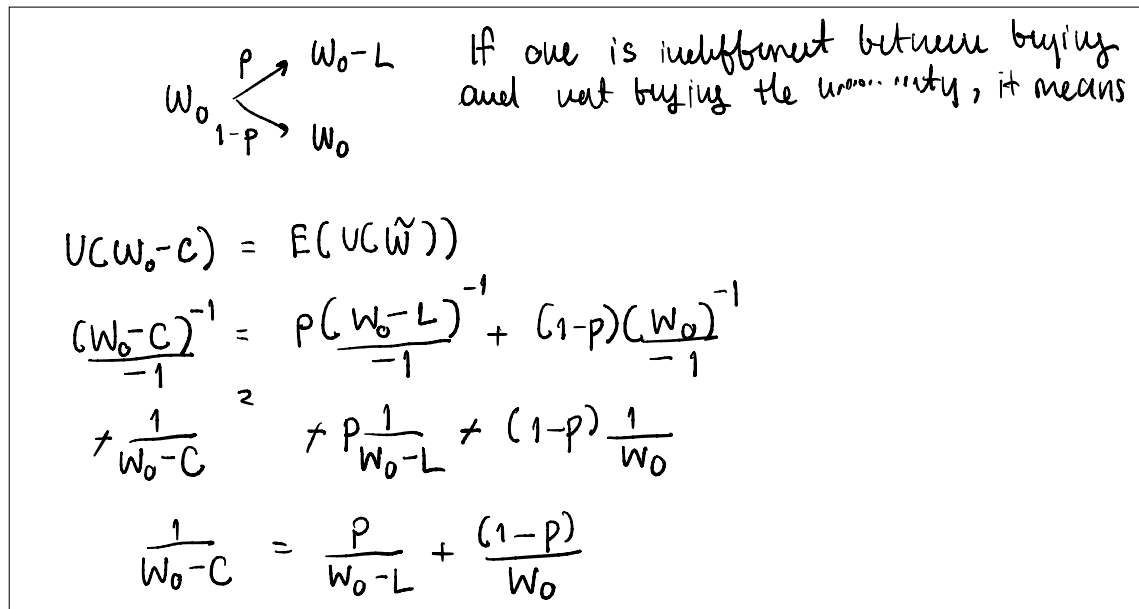 W₀ p W₀-L
1-p W₀
If one is indifferent between buying
and not buying the, it means
U(W₀-C) = E(U(W̃))
(W₀-C)⁻¹/-1 = p(W₀-L)⁻¹/-1 + (1-p)(W₀)⁻¹/-1
+ 1/(W₀-C) = + p 1/(W₀-L) + (1-p) 1/W₀
1/(W₀-C) = p/(W₀-L) + (1-p)/W₀